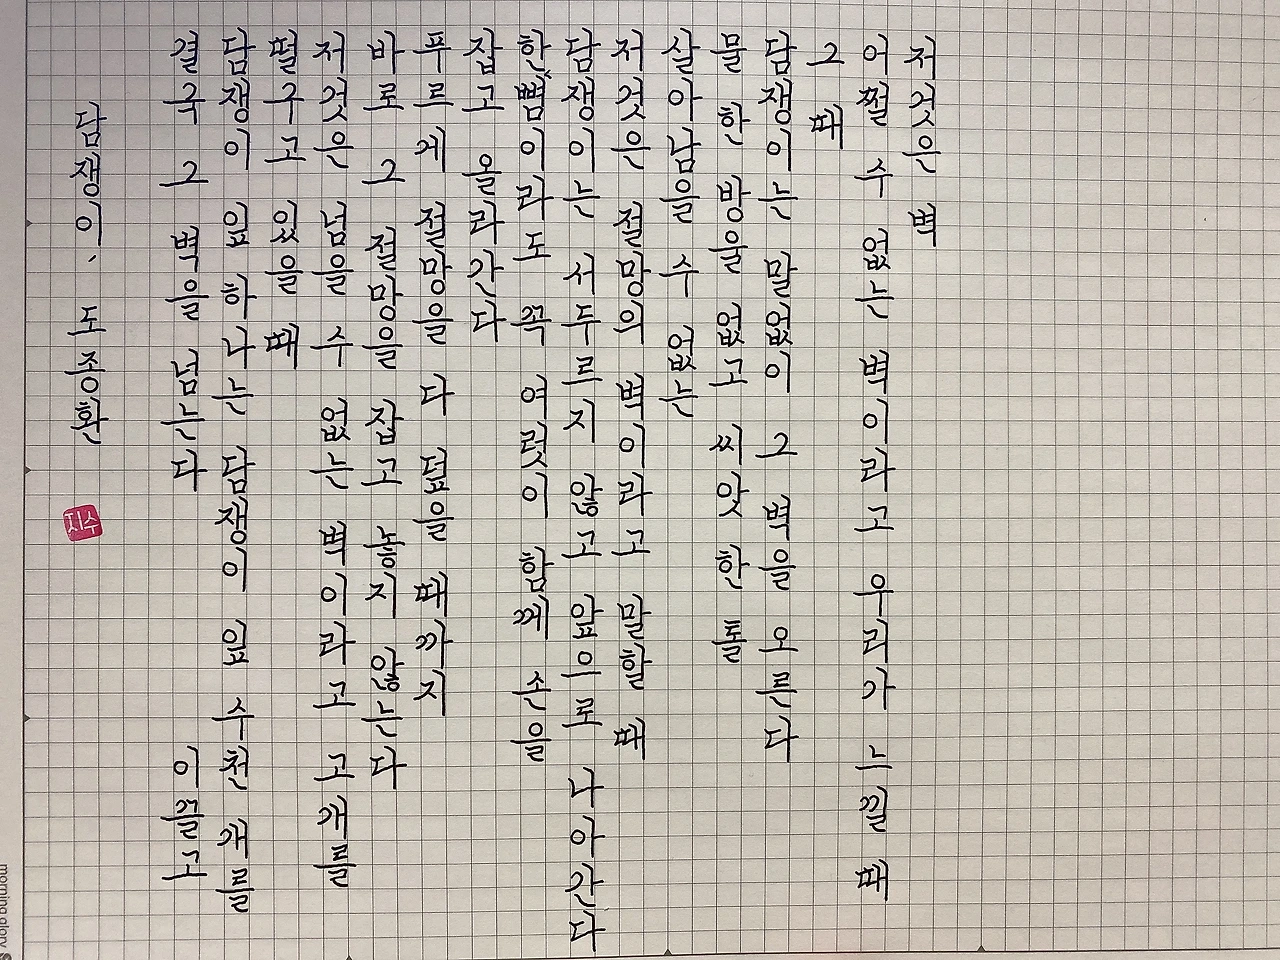 저것은 벽
어쩔 수 없는 벽이라고 우리가 느낄 때
그 때
담쟁이는 말없이 그 벽을 오른다
물 한 방울 없고 씨앗 한 톨
살아남을 수 없는
저것은 절망의 벽이라고 말할 때
담쟁이는 서두르지 않고 앞으로 나아간다
한뼘이라도 꼭 여럿이 함께 손을
잡고 올라간다
푸르게 절망을 다 덮을 때까지
바로 그 절망을 잡고 놓지 않는다
저것은 넘을 수 없는 벽이라고 고개를
떨구고 있을 때
담쟁이 잎 하나는 담쟁이 잎 수천 개를
이끌고
결국 그 벽을 넘는다
담쟁이, 도종환
지수
morning glory